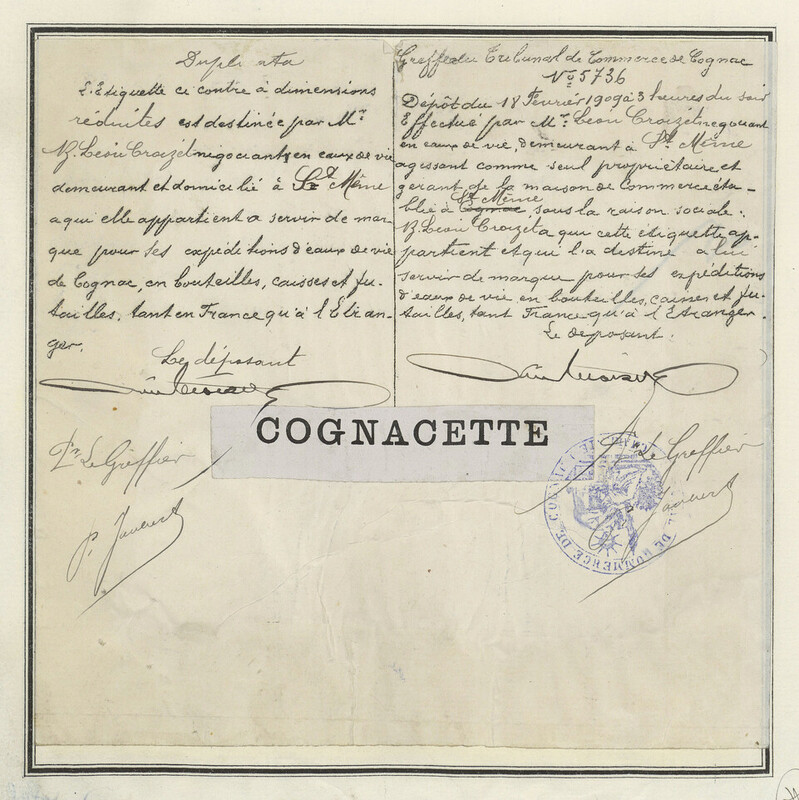 Duplicata
L'Etiquette ci contre à dimensions
réduites est destinée par Mr
B. Léon Croizet négociant en eaux de vie
demeurant et domicilié à St Même
a qui elle appartient a servir de mar
que pour ses expéditions d'eaux de vie
de Cognac, en bouteilles, caisses et fu-
tailles, tant en France qu'à l'Etran-
ger.
Le déposant
Pr Le Greffier
Greffe du Tribunal de Commerce de Cognac
No 5736
Dépôt du 18 Février 1909 à 3 heures du soir
Effectué par Mr Léon Croizet négociant
en eaux de vie, demeurant à St Même
agissant comme seul propriétaire et
gérant de la maison de Commerce éta-
St Même
blie à Cognac, sous la raison sociale:
B. Léon Croizet a qui cette étiquette ap-
partient et qui l'a destine a lui
servir de marque pour ses expéditions
d'eaux de vie en bouteilles, caisses et fu-
tailles, tant France qu'à l'Etranger.
Le deposant:
Le Greffier
COGNACETTE
DE COMMERCE DE COGNAC